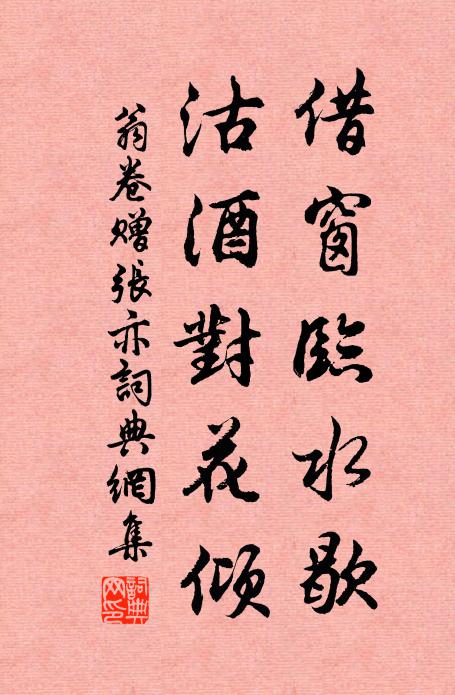 借窗臨水歇
沽酒對花傾
翁卷贈張亦詞典網集
詞典網印